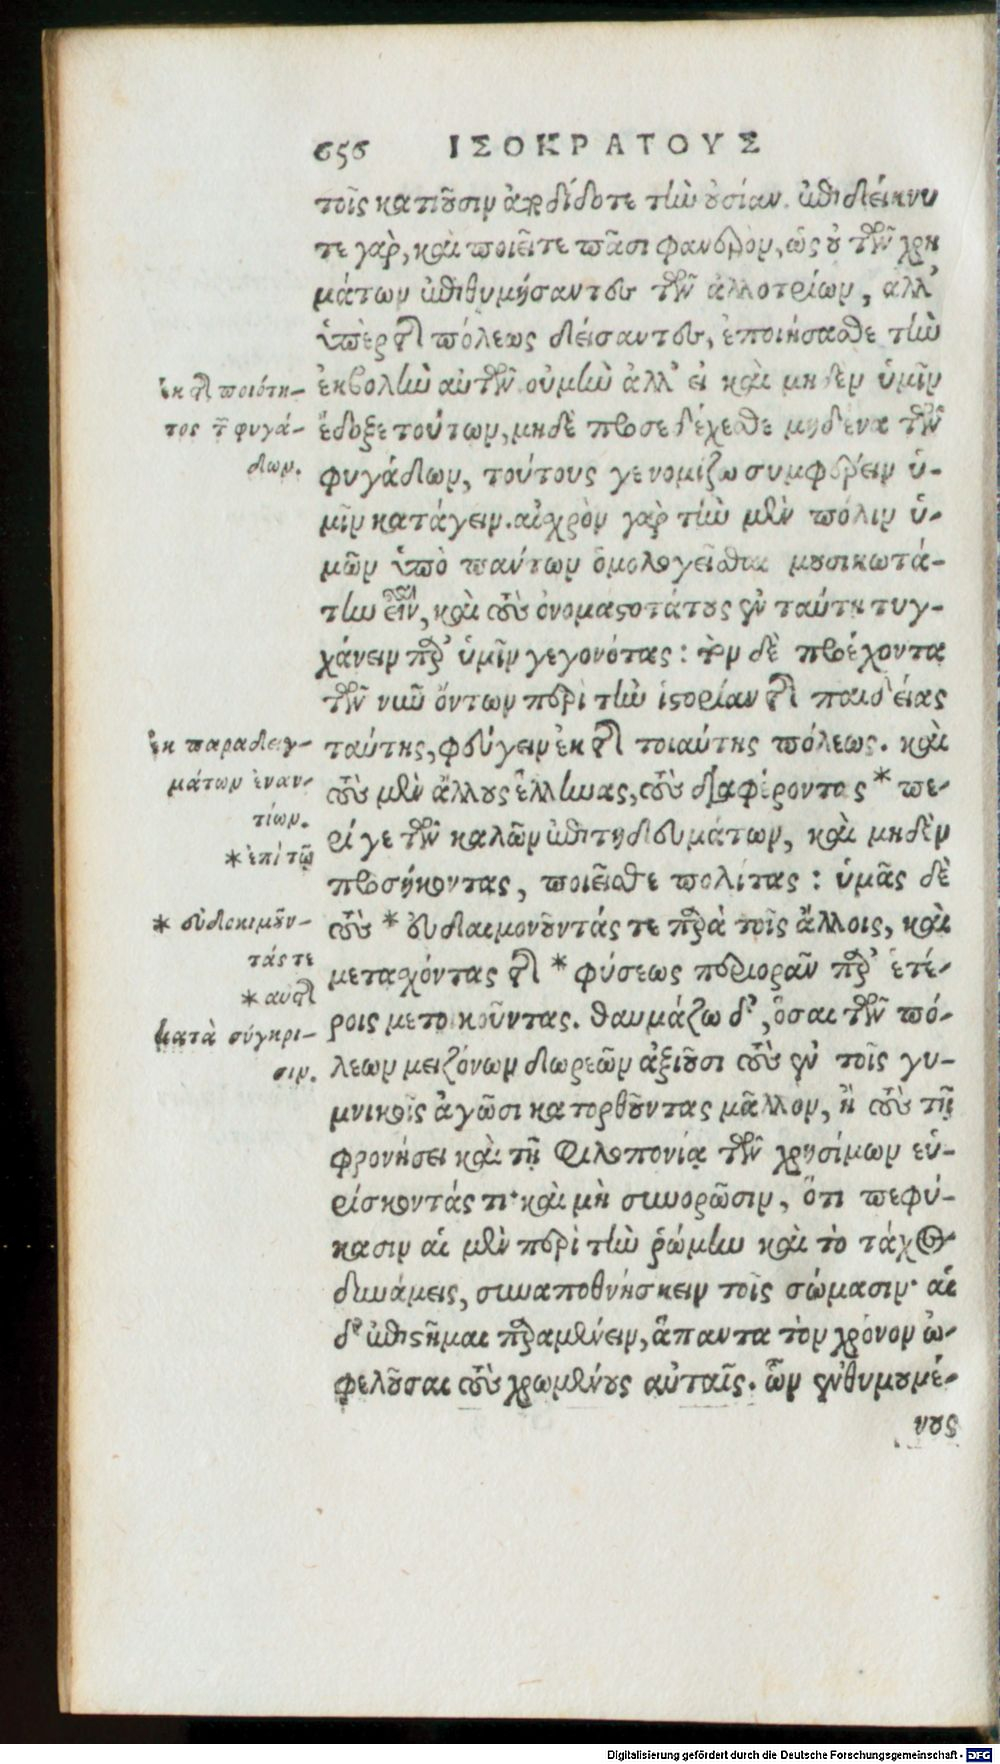 656 ΙΣΟΚΡΑΤΟΥΣ
τοῖς κατιοῦσιν ἀποδίδοτε τὴν οὐσίαν. ἐπιδείκνυ
τε γὰρ, καὶ ποιεῖτε πᾶσι φανερὸν, ὡς οὐ τῶν χρη
μάτων ἐπιθυμήσαντες τῶν ἀλλοτρίων, ἀλλ'
ὑπὲρ τῆς πόλεως δείσαντες, ἐποιήσασθε τὴν
ἐκβολὴν αὐτῶν. οὐ μὴν ἀλλ' εἰ καὶ μηδὲν ὑμῖν
ἔδοξε τούτων, μηδὲ προσεδέχεσθε μηδένα τῶν
φυγάδων, τούτους γε νομίζω συμφέρειν ὑ-
μῖν κατάγειν. αἰσχρὸν γὰρ τὴν μὲν πόλιν ὑ-
μῶν ὑπὸ πάντων ὁμολογεῖσθαι μουσικωτά-
την εἶναι, καὶ τοὺς ὀνομαστοτάτους ἐν ταύτῃ τυγ-
χάνειν παρ' ὑμῖν γεγονότας: τὸν δὲ προέχοντα
τῶν νῦν ὄντων περὶ τὴν ἱστορίαν τῆς παιδείας
ταύτης, φεύγειν ἐκ τῆς τοιαύτης πόλεως. καὶ
τοὺς μὲν ἄλλους ἕλληνας, τοὺς διαφέροντας * πε-
ρί γε τῶν καλῶν ἐπιτηδευμάτων, καὶ μηδὲν
προσήκοντας, ποιεῖσθε πολίτας: ὑμᾶς δὲ
τοὺς * εὐδαιμονοῦντάς τε παρὰ τοῖς ἄλλοις, καὶ
μετασχόντας τῆς * φύσεως περιορᾶν παρ' ἑτέ-
ροις μετοικοῦντας. θαυμάζω δ', ὅσαι τῶν πό-
λεων μειζόνων δωρεῶν ἀξιοῦσι τοὺς ἐν τοῖς γυ-
μνικοῖς ἀγῶσι κατορθοῦντας μᾶλλον, ἢ τοὺς τῇ
φρονήσει καὶ τῇ φιλοπονίᾳ τῶν χρησίμων εὑ-
ρίσκοντάς τι· καὶ μὴ συνορῶσιν, ὅτι πεφύ-
κασιν αἱ μὲν περὶ τὴν ῥώμην καὶ τὸ τάχος
δυνάμεις, συναποθνήσκειν τοῖς σώμασιν· αἱ
δ' ἐπιστῆμαι παραμένειν, ἅπαντα τὸν χρόνον ὠ-
φελοῦσαι τοὺς χρωμένους αὐταῖς. ὧν ἐνθυμουμέ-
νους
ἐκ τῆς ποιότη-
τος τῶν φυγά-
δων.
ἐκ παραδειγ-
μάτων ἐναν-
τίων.
* ἐπὶ τῷ
* εὐδοκιμοῦν-
τάς τε
* αὐτῆς
κατὰ σύγκρι-
σιν.
Digitalisierung gefördert durch die Deutsche Forschungsgemeinschaft - DFG